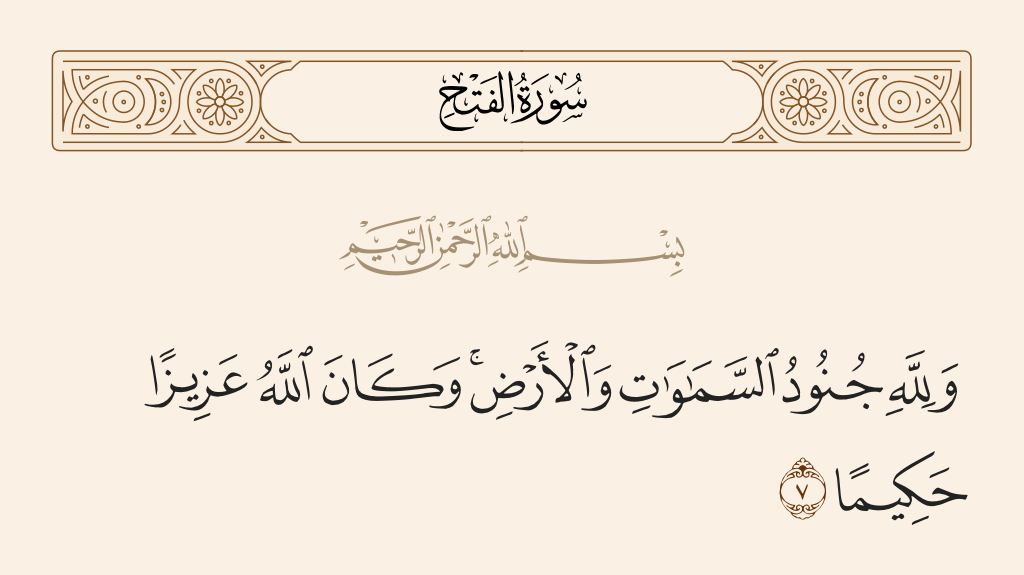 سُورَةُ الفَتۡحِ
بِسۡمِ ٱللَّهِ ٱلرَّحۡمَٰنِ ٱلرَّحِيمِ
وَلِلَّهِ جُنُودُ ٱلسَّمَٰوَٰتِ وَٱلۡأَرۡضِۚ وَكَانَ ٱللَّهُ عَزِيزًا
حَكِيمًا ٧